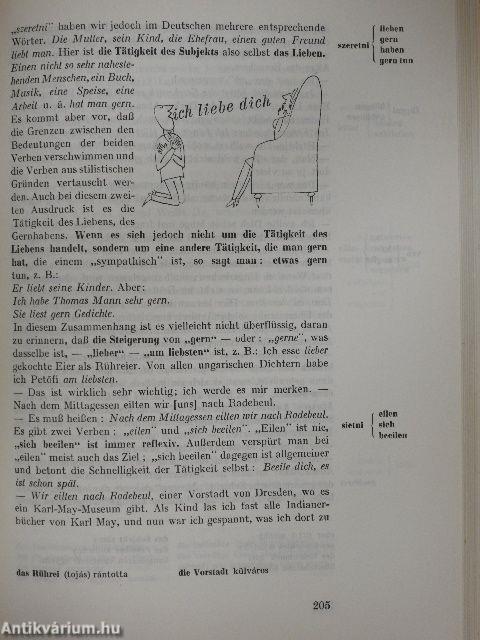 „szeretni" haben wir jedoch im Deutschen mehrere entsprechende
Wörter. Die Mutter, sein Kind, die Ehefrau, einen guten Freund
liebt man. Hier ist die Tätigkeit des Subjekts also selbst das Lieben.
szeretni
lieben
gern
haben
gern tun
Einen nicht so sehr naheste-
henden Menschen, ein Buch,
Musik, eine Speise, eine
Arbeit u. ä. hat man gern.
Es kommt aber vor, daß
die Grenzen zwischen den
Bedeutungen der beiden
Verben verschwimmen und
die Verben aus stilistischen
Gründen vertauscht wer-
den. Auch bei diesem zwei-
ten Ausdruck ist es die
Tätigkeit des Liebens, des
ich liebe dich
Gernhabens. Wenn es sich jedoch nicht um die Tätigkeit des
Liebens handelt, sondern um eine andere Tätigkeit, die man gern
hat, die einem „sympathisch" ist, so sagt man: etwas gern
tun, z. B.:
Er liebt seine Kinder. Aber:
Ich habe Thomas Mann sehr gern.
Sie liest gern Gedichte.
In diesem Zusammenhang ist es vielleicht nicht überflüssig, daran
zu erinnern, daß die Steigerung von „gern" — oder: „gerne", was
dasselbe ist, — „lieber" — „am liebsten" ist, z. B.: Ich esse lieber
gekochte Eier als Rühreier. Von allen ungarischen Dichtern habe
ich Petőfi am liebsten.
— Das ist wirklich sehr wichtig; ich werde es mir merken. —
Nach dem Mittagessen eilten wir [uns] nach Radebeul.
— Es muß heißen: Nach dem Mittagessen eilten wir nach Radebeul.
Es gibt zwei Verben: „eilen" und „sich beeilen". „Eilen" ist nie,
„sich beeilen" ist immer reflexiv. Außerdem verspürt man bei
„eilen" meist auch das Ziel; „sich beeilen" dagegen ist allgemeiner
und betont die Schnelligkeit der Tätigkeit selbst: Beeile dich, es
ist schon spät.
sietni
eilen
sich
beeilen
— Wir eilten nach Radebeul, einer Vorstadt von Dresden, wo es
ein Karl-May-Museum gibt. Als Kind las ich fast alle Indianer-
bücher von Karl May, und nun war ich gespannt, was ich dort zu
das Rührei (tojás) rántotta
die Vorstadt külváros
205
Antikvárium.hu